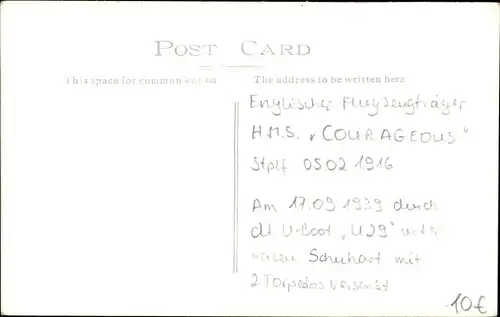 POST CARD
This space for communication
The address to be written here
Englischer Flugzeugträger
H.M.S. „COURAGEOUS"
Stplf 0502 1916
Am 17.09 1939 durch
dt U-Boot „U29" unter
Schuhart mit
2 Torpedos versenkt
10€